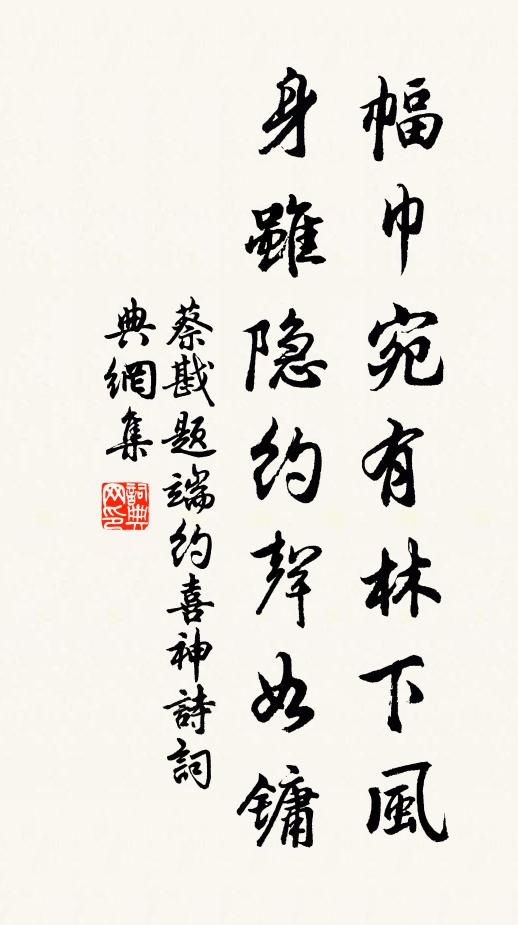 幅巾宛有林下風
身雖隐約聲如鏞
蔡戡題端約喜神詩詞
典網集
詞典网印